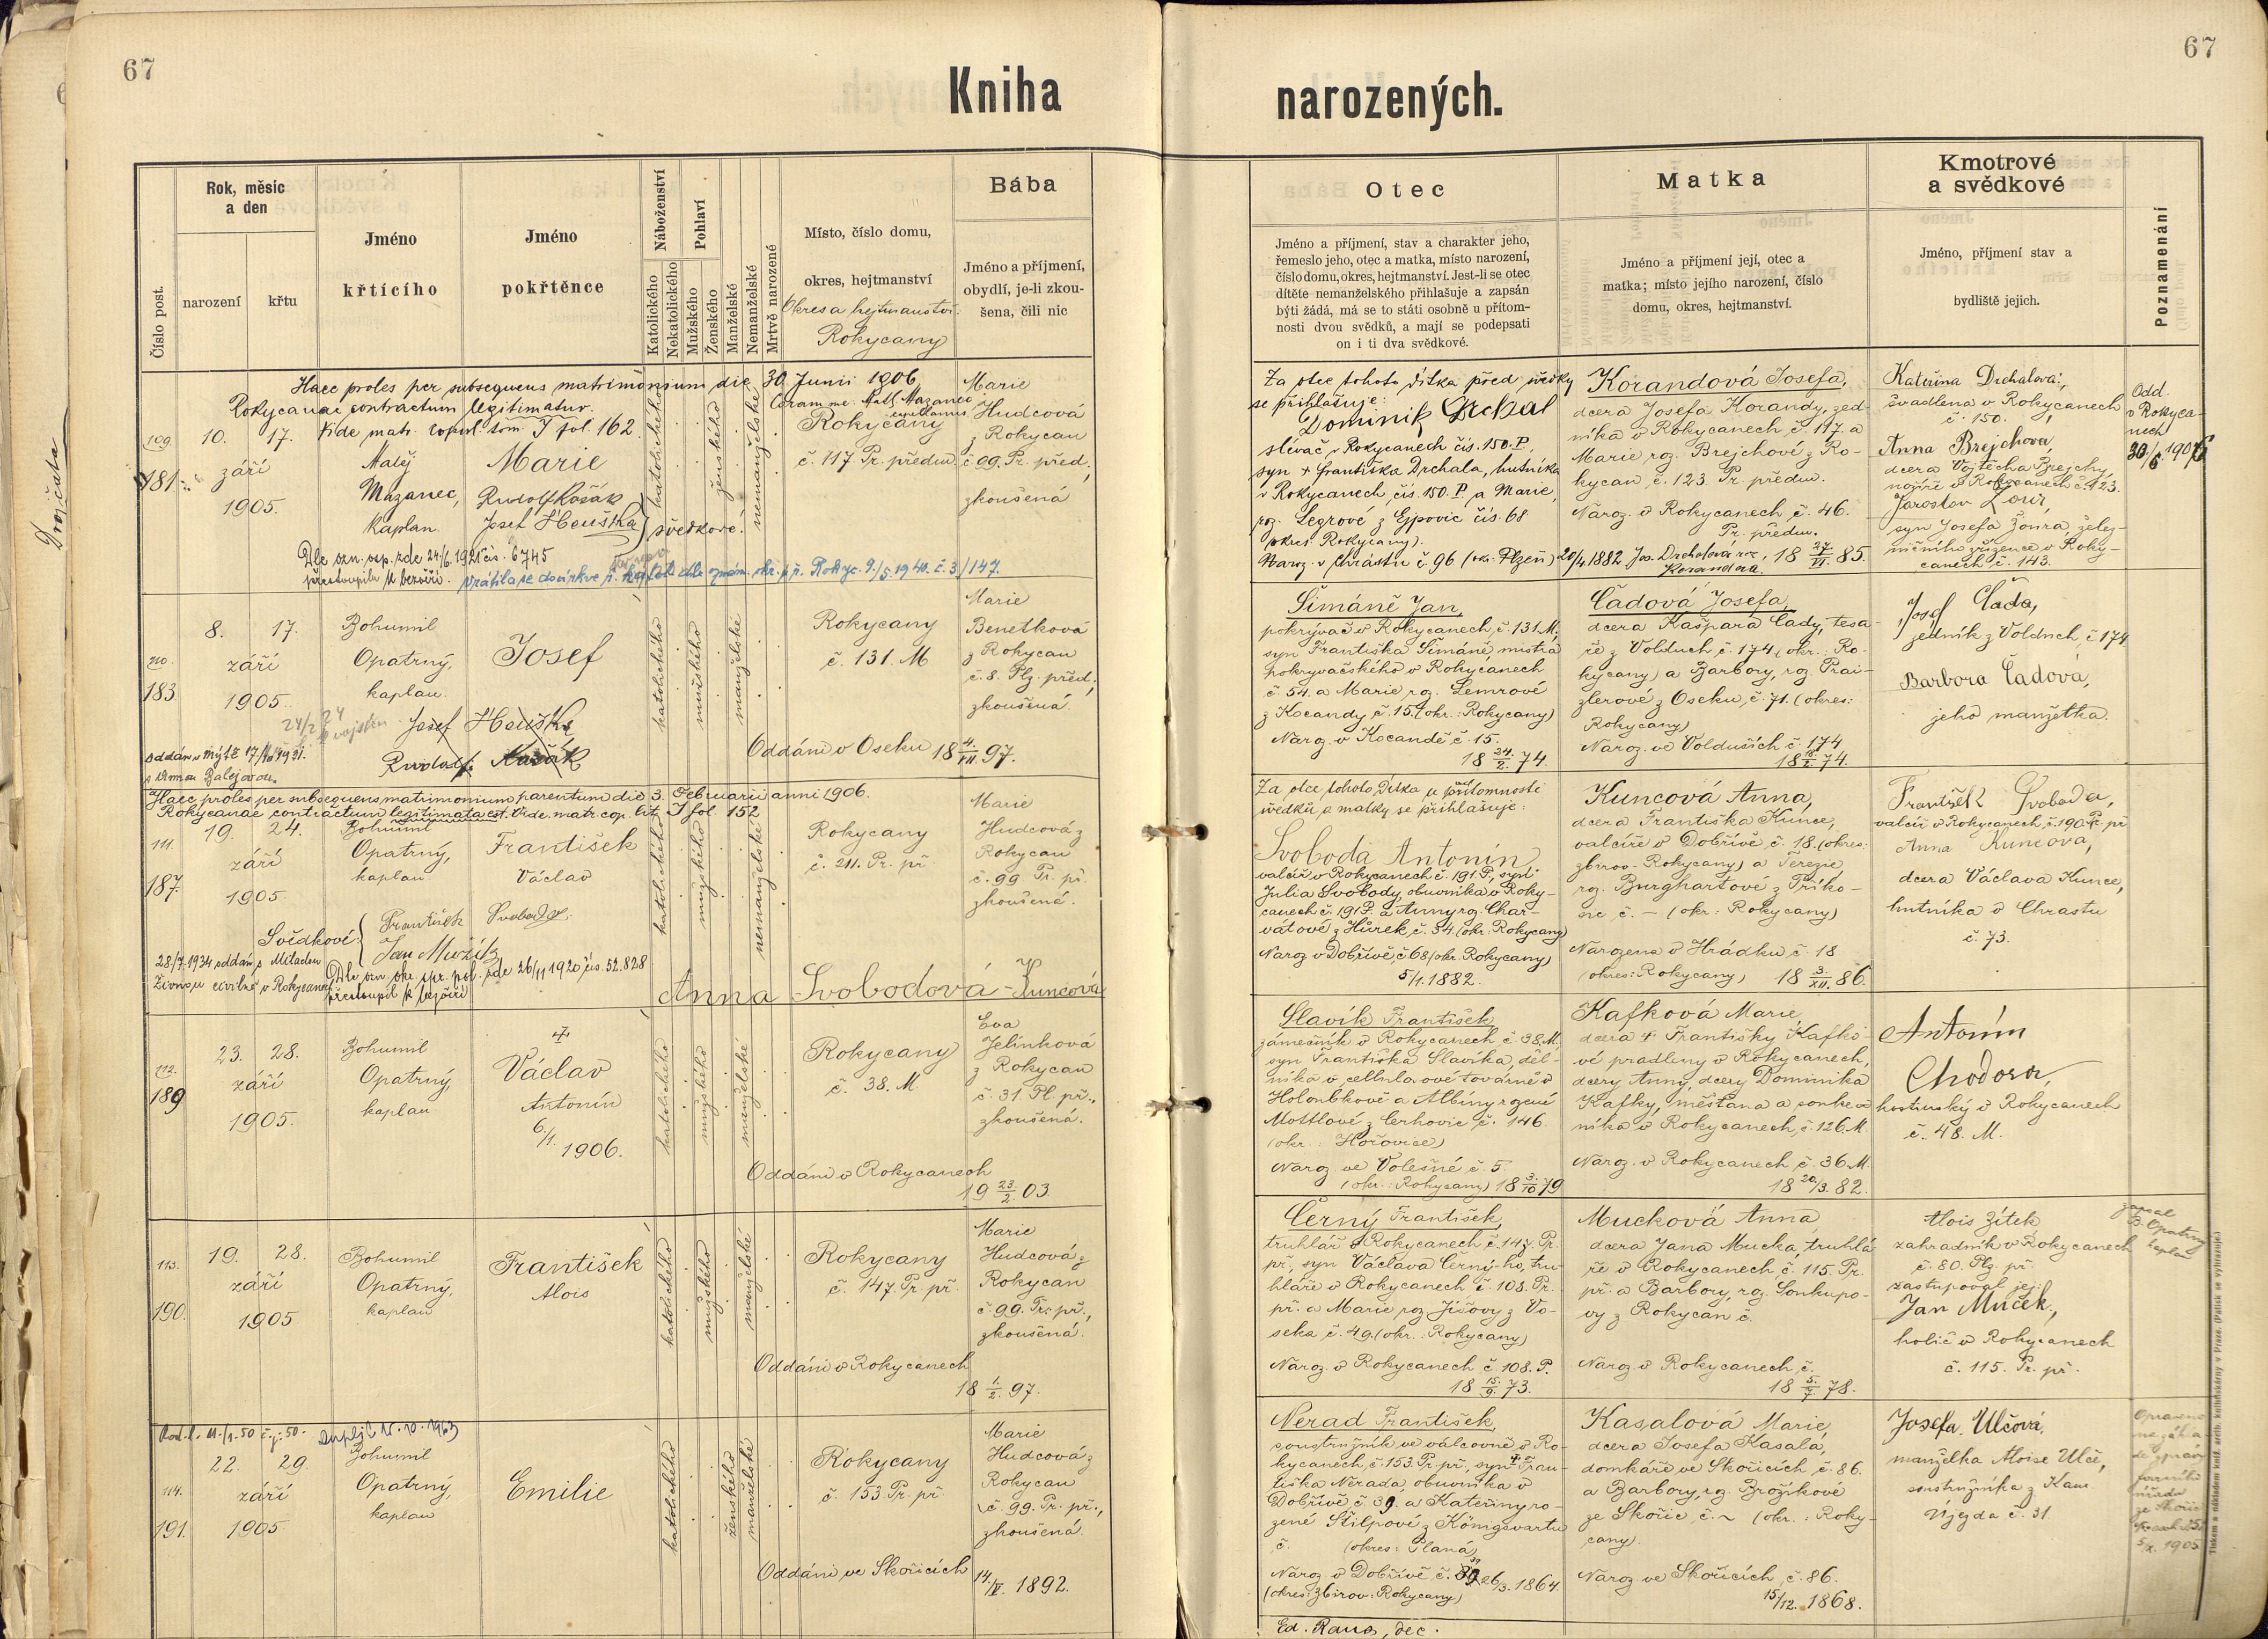 67
67
Kniha
narozených.
Číslo post.
Rok, měsíc
a den
narození
křtu
Jméno
křtícího
Jméno
pokřtěnce
Náboženství
Katolického
Nekatolického
Pohlaví
Mužského
Ženského
Manželské
Nemanželské
Mrtvě narozené
Místo, číslo domu,
okres, hejtmanství
Okres a hejtmanství:
Rokycany
Bába
Jméno a příjmení,
obydlí, je-li zkou-
šena, čili nic
Otec
Jméno a příjmení, stav a charakter jeho,
řemeslo jeho, otec a matka, místo narození,
číslo domu, okres, hejtmanství. Jest-li se otec
dítěte nemanželského přihlašuje a zapsán
býti žádá, má se to státi osobně u přítom-
nosti dvou svědků, a mají se podepsati
on i ti dva svědkové.
Matka
Jméno a příjmení její, otec a
matka; místo jejího narození, číslo
domu, okres, hejtmanství.
Kmotrové
a svědkové
Jméno, příjmení stav a
bydliště jejich.
Poznamenání
Dvojčata
Haec proles per subsequens matrimonium die 30 Junii 1906
Rokycanae contractum legitimatur.
Coram me: Math. Mazanec
Vide matr. copul. tom. I fol. 162.
109.
181.
10. 17.
září
1905.
Matěj
Mazanec,
kaplan.
Marie
Rudolf Košák
Josef Heuška } svědkové:
katolického
ženského
nemanželské
Rokycany
č. 117 Pr. předm.
Marie
Hudcová
z Rokycan
č. 99. Pr. před.,
zkoušená
Dle ozn. osp. zde 24/6. 1921 čís. 6745
přestoupila k bezvěří.
Vrátila se do církve ř. katol. dle oznám. okr. úř. Rokyc. 9./5. 1940. č. 3/147.
Za otce tohoto dítka před svědky
se přihlašuje:
Dominik Drchal
slévač v Rokycanech čís. 150. P.,
syn + Františka Drchala, hutníka
v Rokycanech, čís. 150. P. a Marie,
roz. Legrové z Ejpovic čís. 68
(okres Rokycany).
Naroz. v Chrástu č. 96 (okr. Plzeň) 20/4 1882
Korandová Josefa,
dcera Josefa Korandy, zed-
níka v Rokycanech č. 117. a
Marie roz. Brejchové z Ro-
kycan, č. 123. Pr. předm.
Naroz. v Rokycanech č. 46.
Pr. předm.
Jos. Drchalová roz. Korandová.
18 27/VI. 85.
Kateřina Drchalová,
švadlena v Rokycanech
č. 150.
Anna Brejchová,
dcera Vojtěcha Brejchy,
nožíře v Rokycanech č. 123.
Jaroslav Zour,
syn Josefa Zoura, želez-
ničního zřízence v Roky-
canech č. 143.
Odd.
v Rokyca-
nech
30/6 1906
110.
183
8. 17.
září
1905.
Bohumil
Opatrný,
kaplan.
Josef
Josef Heuška
Rudolf Košák
katolického
mužského
manželské
Rokycany
č. 131. M
Marie
Benetková
z Rokycan
č. 8. Plz. před.,
zkoušená.
Oddáni v Oseku 18 4./VII. 97.
Šimáně Jan,
pokrývač v Rokycanech, č. 131 M.,
syn Františka Šimáně, mistra
pokryvačského v Rokycanech
č. 54. a Marie roz. Lemrové
z Kocandy, č. 15. (okr.: Rokycany)
Naroz. v Kocandě č. 15.
18 24./2. 74.
Čadová Josefa,
dcera Kašpara Čady, tesa-
ře z Volduch, č. 174 (okr.: Ro-
kycany) a Barbory, roz. Prai-
zlerové z Oseku, č. 71. (okres:
Rokycany)
Naroz. ve Volduších č. 174
Josef Čada,
jedník z Volduch, č. 174
Barbora Čadová,
jeho manželka.
Haec proles per subsequens matrimonium parentum die 3. Februarii anni 1906.
Rokycanae contractum legitimata est. Vide matr. cop. lit. I fol. 152
111.
187.
19. 24.
září
1905.
Bohumil
Opatrný,
kaplan.
František
Václav
Svědkové: { František Svoboda.
Jan Mužík
28/7. 1934 oddán s Miladou
civilně v Rokycanech
Dle ozn. okr. spr. pol. zde 26/11 1920 čís. 52.828
přestoupil k bezvěří
katolického
mužského
nemanželské
Rokycany
č. 211. Pr. př.
Marie
Hudcová z
Rokycan
č. 99 Pr. př.
zkoušená.
Anna Svobodová - Kuncová
Za otce tohoto dítka u přítomnosti
svědků a matky se přihlašuje:
Svoboda Antonín
valcíř v Rokycanech č. 191 P., syn
Julia Svobody, obuvníka v Roky-
canech č. 191 P. a Anny roz. Char-
vátové z Hůrek, č. 34. (okr. Rokycany)
Naroz. v Dobřívě, č. 68 (okr. Rokycany)
5/1. 1882.
Kuncová Anna,
dcera Františka Kunce,
valcíře v Dobřívě, č. 18. (okres:
Zbirov - Rokycany) a Terezie,
roz. Burghartové z Příko-
sic č. - (okr.: Rokycany)
Narozena v Hrádku č. 18
(okres: Rokycany) 18 3./XII. 86.
František Svoboda,
valcíř v Rokycanech, č. 190 Pr. př
Anna Kuncová,
dcera Václava Kunce,
hutníka v Chrastu
č. 73.
112.
189
23. 28.
září
1905.
Bohumil
Opatrný,
kaplan
+
Václav
Antonín
6./1. 1906.
katolického
mužského
manželské
Rokycany
č. 38. M.
Eva
Jelínková
z Rokycan
č. 31. Pl. př.,
zkoušená.
Oddáni v Rokycanech
19 23./2. 03.
Slavík František,
zámečník v Rokycanech, č. 38. M.,
syn Františka Slavíka, děl-
níka v cellulosové továrně v
Holoubkově a Albiny rozené
Motlové z Cerhovic č. 146
(okr.: Hořovice)
Naroz. ve Volešné č. 5.
(okr.: Rokycany) 18 3./10. 79
Kafková Marie,
dcera + Františky Kafko-
vé pradleny v Rokycanech,
dcery Anny, dcery Dominika
Kafky, měšťana a soukeo-
níka v Rokycanech, č. 126. M
Naroz. v Rokycanech, č. 36. M.
18 20/3. 82.
Antonín
Chodora,
hostinský v Rokycanech
č. 48. M.
113.
190.
19. 28.
září
1905
Bohumil
Opatrný,
kaplan
František
Alois
katolického
mužského
manželské
Rokycany
č. 147. Pr. př.
Marie
Hudcová z
Rokycan
č. 99. Pr. př.,
zkoušená.
Oddáni v Rokycanech
18 1./2. 97.
Černý František,
truhlář v Rokycanech č. 147. Pr.
př., syn Václava Černého, tru-
hláře v Rokycanech č. 108. Pr.
př. a Marie roz. Jíšovy z Vo-
seka č. 49. (okr.: Rokycany)
Naroz. v Rokycanech č. 108. P.
18 15./9. 73.
Mucková Anna,
dcera Jana Mucka, truhlá-
ře v Rokycanech č. 115. Pr.
př. a Barbory, roz. Soukupo-
vy z Rokycan č.
Naroz. v Rokycanech, č.
18 5./7. 78.
Alois Zítek
zahradník v Rokycanech
č. 80. Plz. př.
zastupoval jej:
Jan Muček,
holič v Rokycanech
č. 115. Pr. př.
zapsal
B. Opatrný
kaplan
Rod. l. 11./1. 50 č. j. 50.
114.
191.
22. 29.
září
1905.
Bohumil
Opatrný,
kaplan
Emilie
katolického
ženského
manželské
Rokycany
č. 153. Pr. př.
Marie
Hudcová z
Rokycan
č. 99. Pr. př.,
zkoušená.
Oddáni ve Skořicích 14./II. 1892.
Nerad František,
soustružník ve válcovně v Ro-
kycanech č. 153. Pr. př., syn + Fran-
tiška Nerada, obuvníka v
Dobřívě, č. 39. a Kateřiny ro-
zené Štilpové z Königswartu
č. (okres: Planá)
Naroz. v Dobřívě č. 39 26/3. 1864.
(okres: Zbirov: Rokycany)
Kasalová Marie,
dcera Josefa Kasala,
domkáře ve Skořicích, č. 86.
a Barbory, roz. Brožíkové
ze Skořic, č. ~ (okr.: Roky-
cany).
Naroz. ve Skořicích, č. 86.
15/12. 1868.
Josefa Ulčová,
manželka Aloise Ulče,
soustružníka z Kam.
Újezda č. 31.
Ed. Rana, dec.